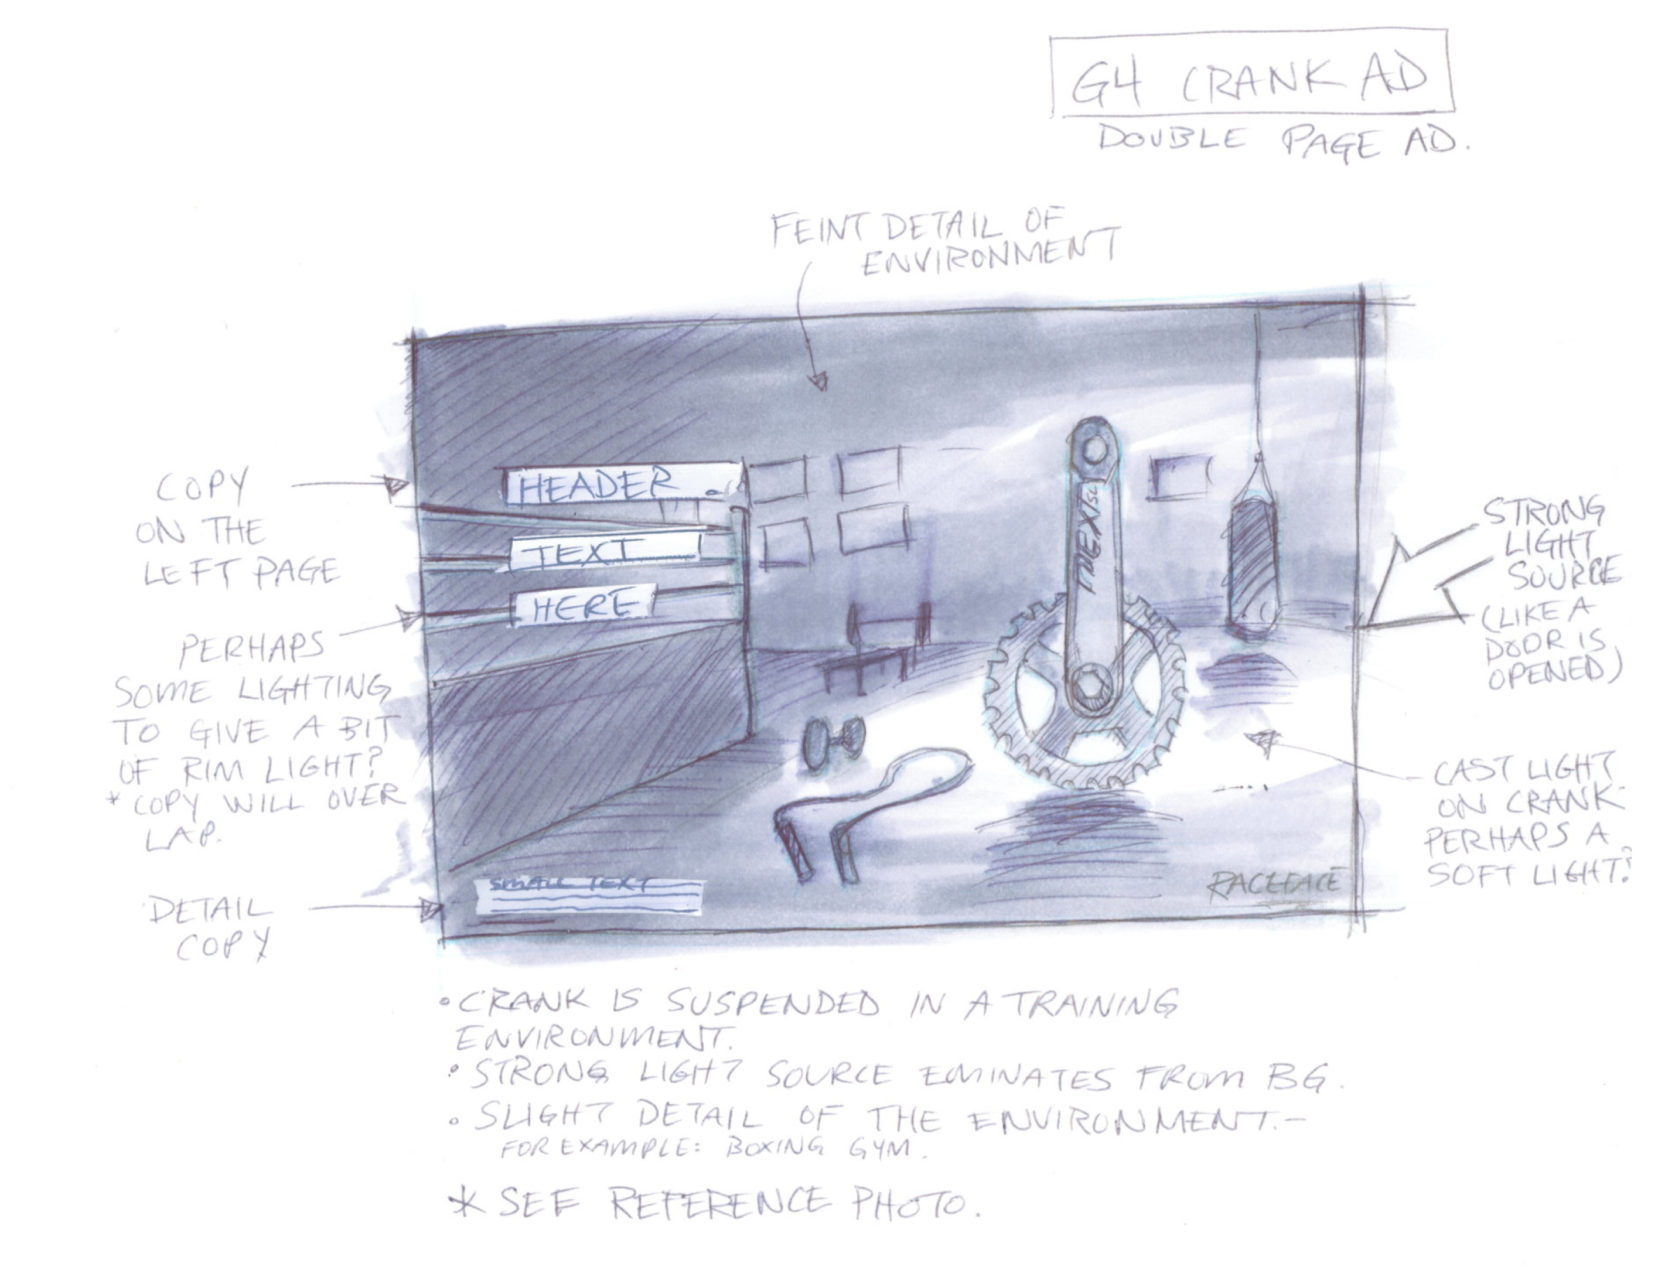 G4 CRANK AD
DOUBLE PAGE AD.
FEINT DETAIL OF
ENVIRONMENT
COPY
ON THE
LEFT PAGE
PERHAPS
SOME LIGHTING
TO GIVE A BIT
OF RIM LIGHT?
* COPY WILL OVER
LAP.
DETAIL
COPY
HEADER
TEXT
HERE
SMALL TEXT
NEXT SL
RACEFACE
STRONG
LIGHT
SOURCE
(LIKE A
DOOR IS
OPENED)
CAST LIGHT
ON CRANK-
PERHAPS A
SOFT LIGHT?
• CRANK IS SUSPENDED IN A TRAINING
ENVIRONMENT.
• STRONG LIGHT SOURCE EMINATES FROM BG.
• SLIGHT DETAIL OF THE ENVIRONMENT.-
FOR EXAMPLE: BOXING GYM.
* SEE REFERENCE PHOTO.